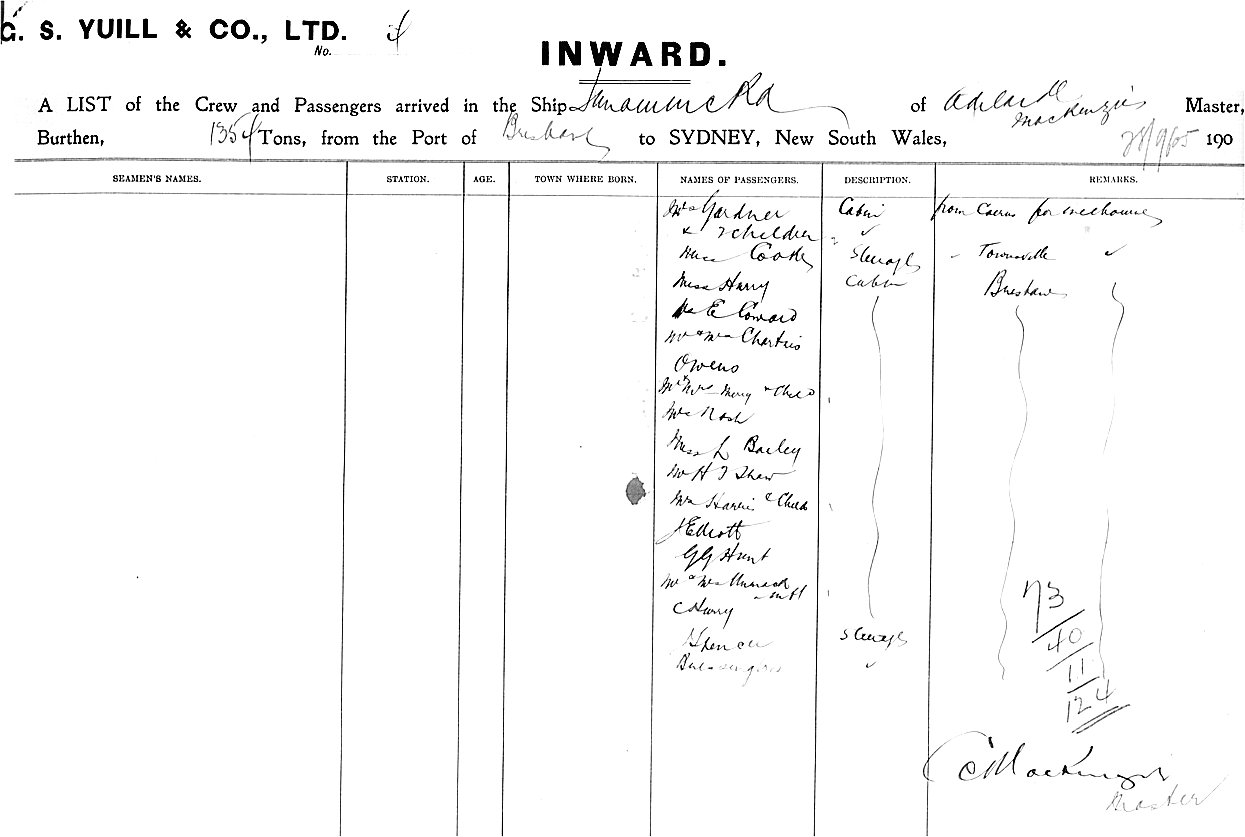 G. S. YUILL & CO., LTD.
No. 4
INWARD.
A LIST of the Crew and Passengers arrived in the Ship Innamincka of Adelaide MacKenzie Master,
Burthen, 1354 Tons, from the Port of Brisbane to SYDNEY, New South Wales, 28/9/05 190
SEAMEN'S NAMES. STATION. AGE. TOWN WHERE BORN. NAMES OF PASSENGERS. DESCRIPTION. REMARKS.
Mrs Gardner Cabin from Cairns for Melbourne
& 2 children
Miss Cook Steerage Townsville
Miss Harry Cabin Brisbane
E Coward
Mr & Mrs Charters
Owens
Mr & Mrs & Child
Mrs Nash
Miss L Bailey
Mr H J Shaw
Mrs Harris & Child
J Elliott
G G Hunt
Mr & Mrs
C Harry
Spencer Steerage
73
40
11
124
C MacKenzie
Master